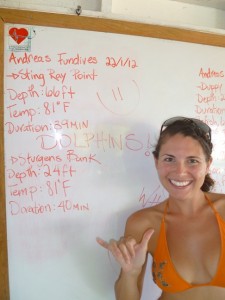 Andreas Fundives 22/1/12
→Sting Ray Point
Depth: 66ft
Temp: 81°F
Duration: 39MIN
DOLPHINS!
→Sturgens Bank
Depth: 24ft
Temp: 81°F
Duration: 40MIN
Andreas